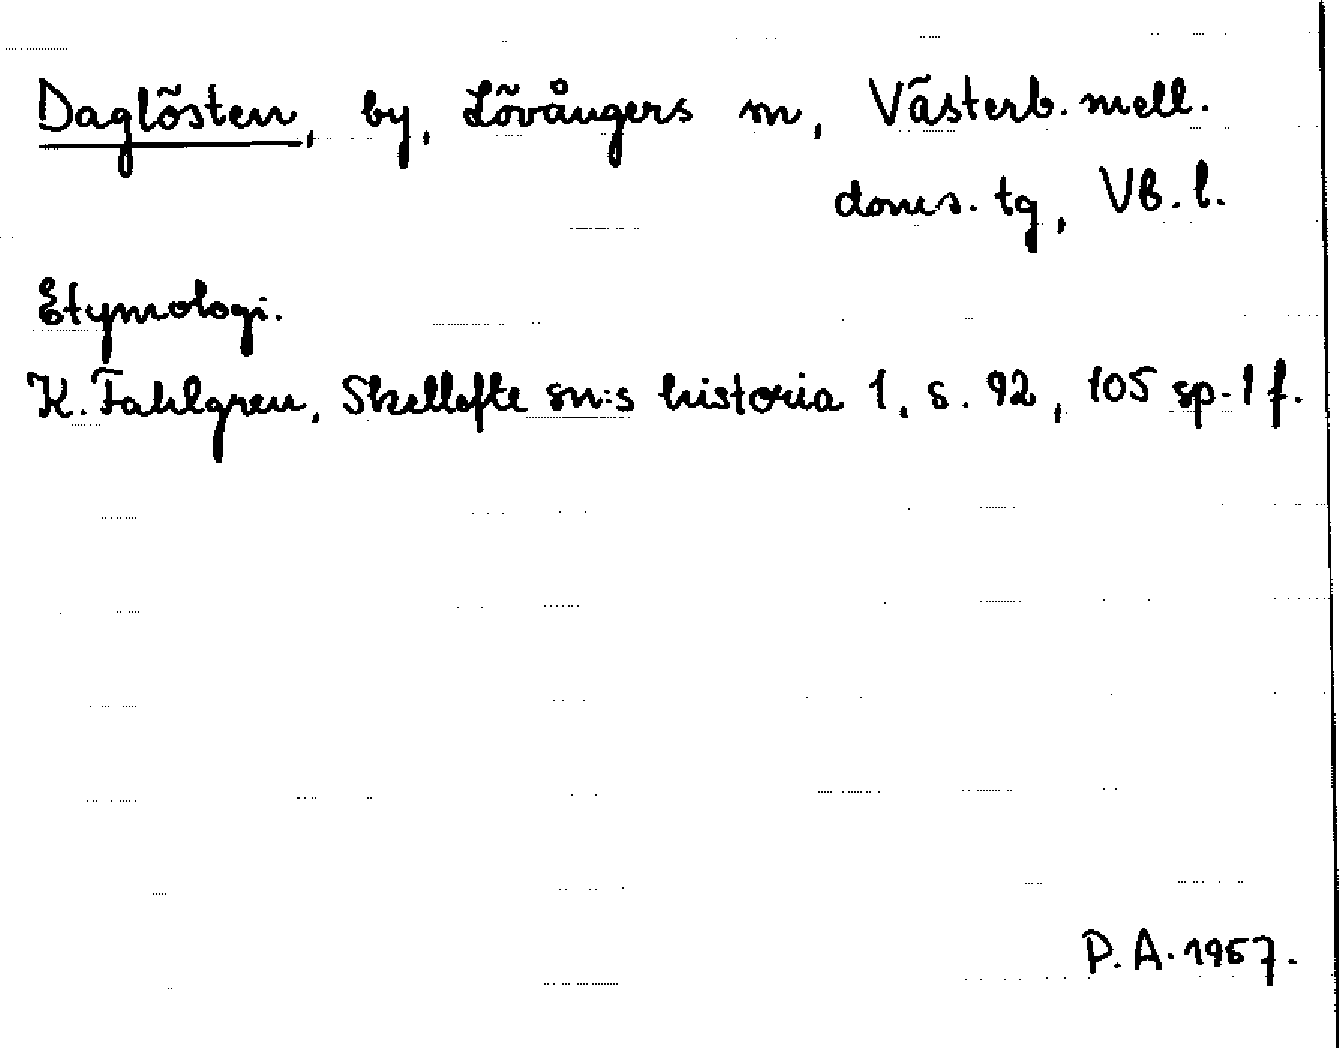 Daglösten, by, Lövångers sn, Västerb. mell.
doms. tg, Vb. l.
Etymologi.
K. Fahlgren, Skellefte sn:s historia 1, s. 92, 105 sp. 1 f.
P. A. 1957.